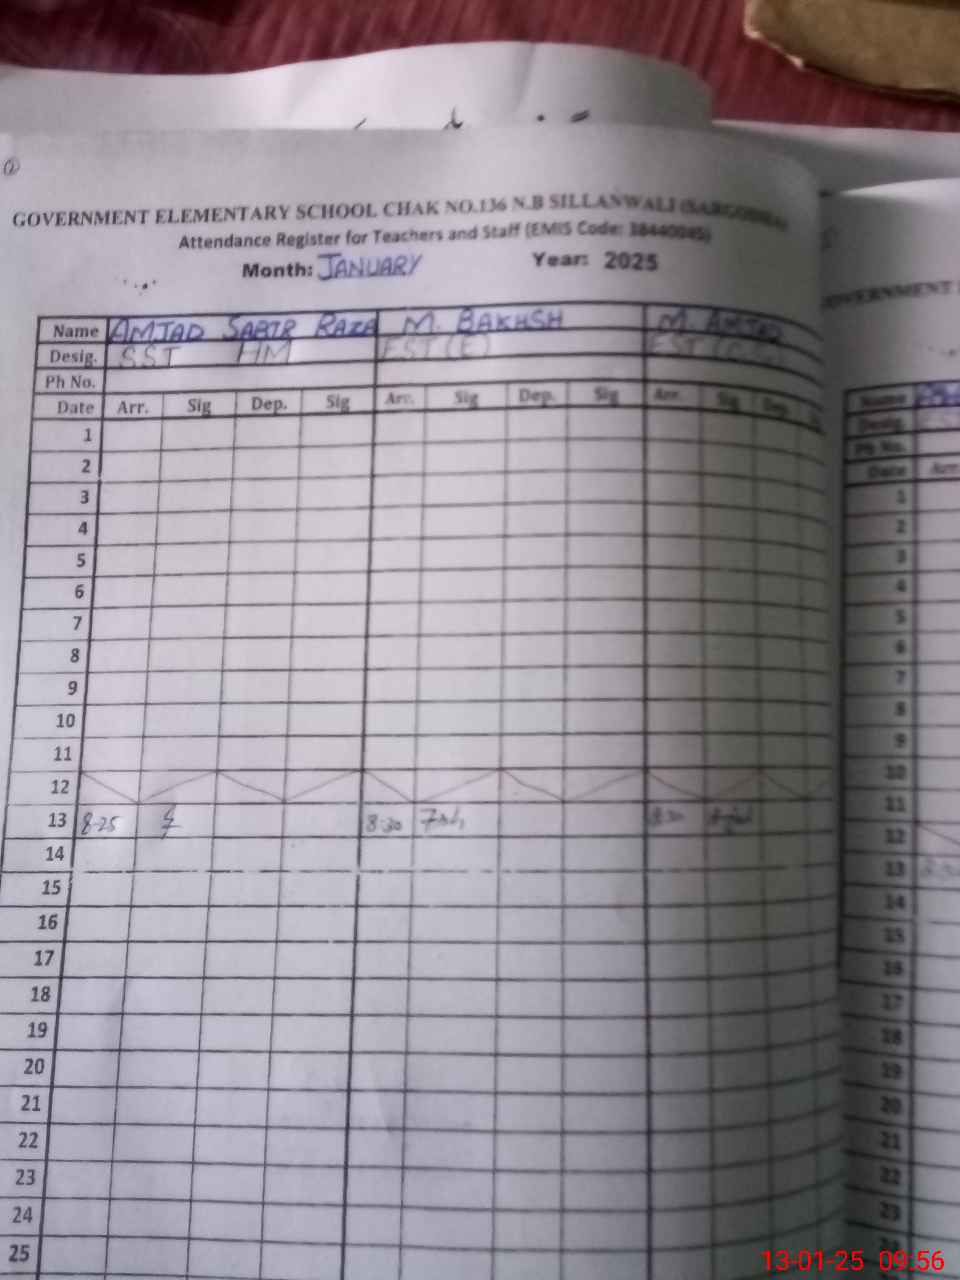 GOVERNMENT ELEMENTARY SCHOOL CHAK NO.136 N.B SILLANWALI (SARGODHA)
Attendance Register for Teachers and Staff (EMIS Code: 38440085)
Month: JANUARY Year: 2025
Name AMJAD SABIR RAZA M. BAKHSH M. AMJAD
Desig. SST HM EST (E) EST
Ph No.
Date Arr. Sig Dep. Sig Arr. Sig Dep. Sig Arr. Sig Dep.
1
2
3
4
5
6
7
8
9
10
11
12
13 8-25 8-30 8-30
14
15
16
17
18
19
20
21
22
23
24
25
GOVERNMENT
Name
Desig.
Ph No.
Date Arr.
1
2
3
4
5
6
7
8
9
10
11
12
13
14
15
16
17
18
19
20
21
22
23
24
13-01-25 09:56